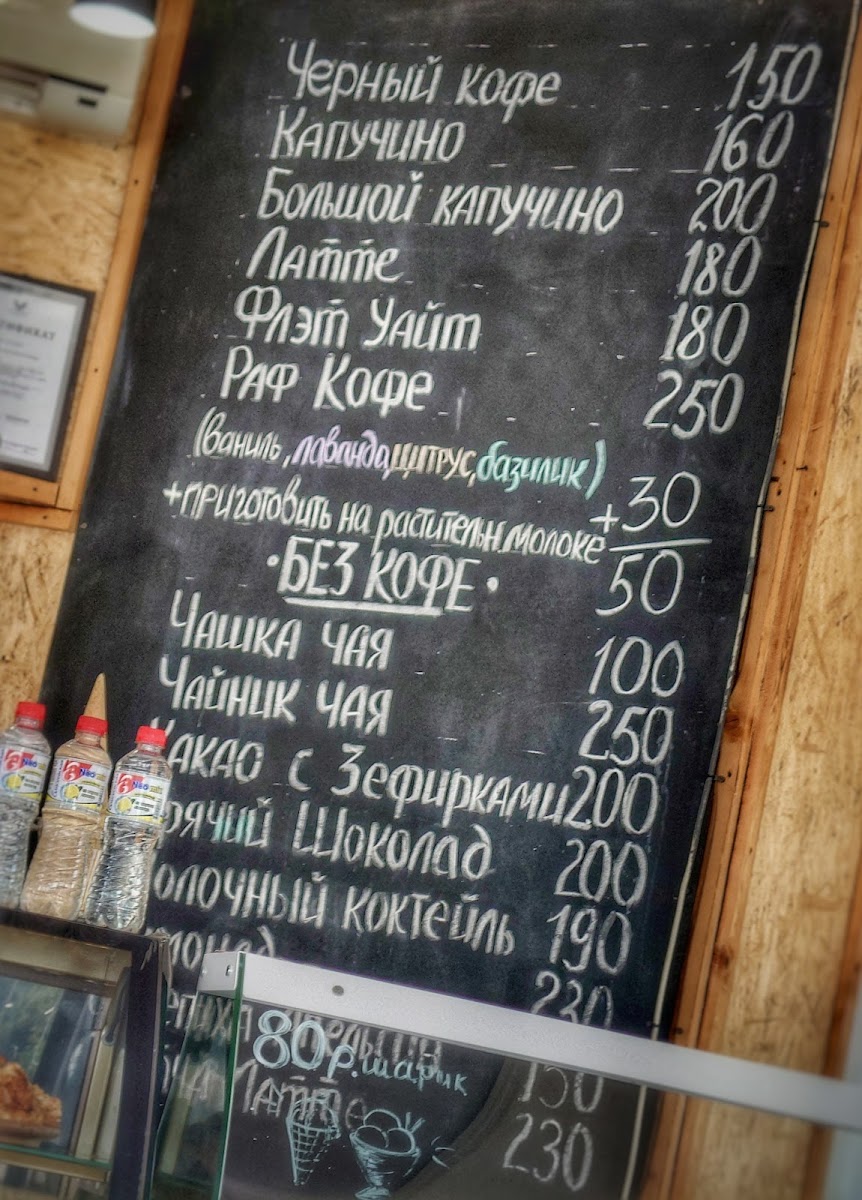 Черный кофе 150
Капучино 160
Большой капучино 200
Латте 180
Флэт Уайт 180
Раф Кофе 250
(ваниль, лаванда, цитрус, базилик) +30
+приготовить на растительн. молоке 50
• БЕЗ КОФЕ •
Чашка чая 100
Чайник чая 250
Какао с Зефирками 200
рячий Шоколад 200
олочный коктейль 190
230
150
Латте 230
80р. шарик